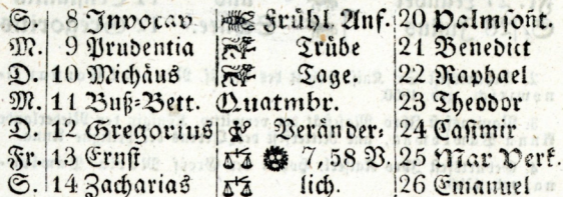 S. 8 Invocav Frühl. Anf. 20 Palmsont.
M. 9 Prudentia Trübe 21 Benedict
D. 10 Michäus Tage. 22 Raphael
M. 11 Buß-Bett. Quatmbr. 23 Theodor
D. 12 Gregorius Veränder- 24 Casimir
Fr. 13 Ernst 7, 58 V. 25 Mar Verk.
S. 14 Zacharias lich. 26 Emanuel